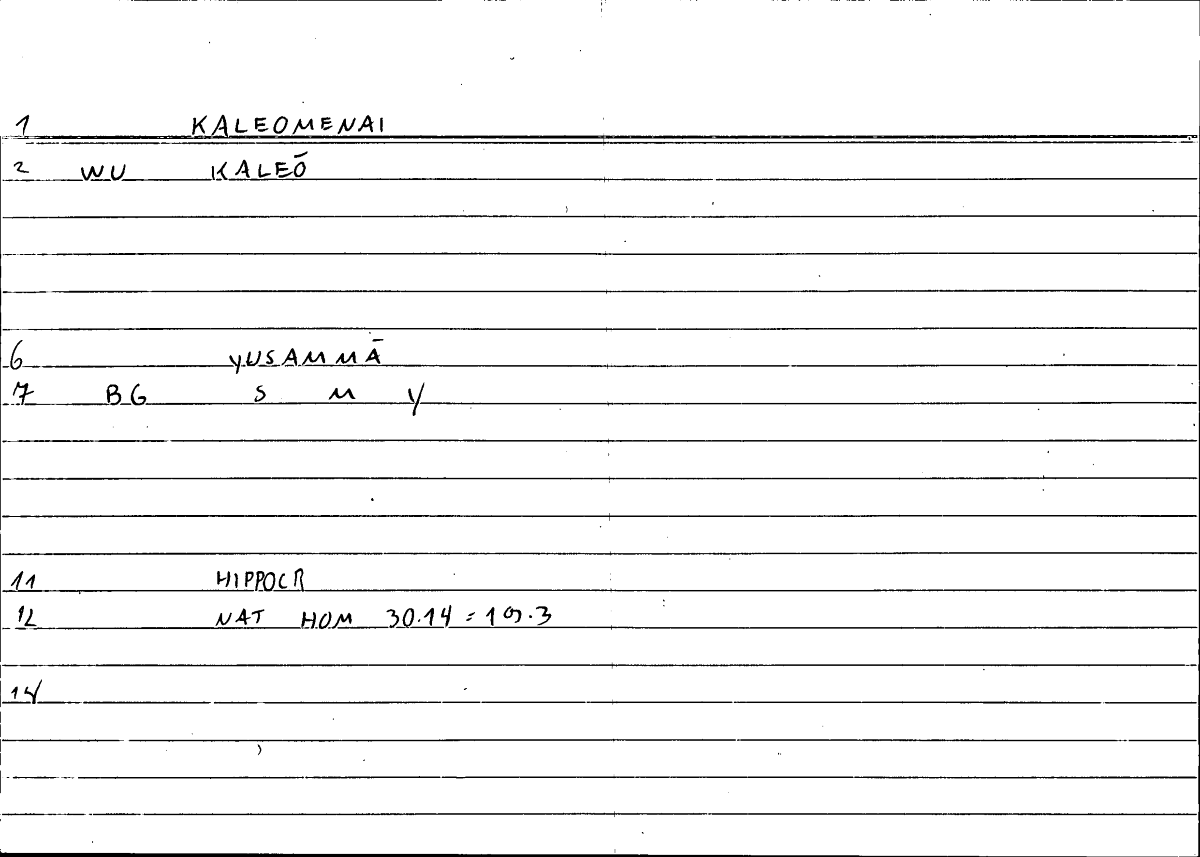 1 KALEOMENAI
2 WU KALEŌ
6 YUSAMMĀ
7 BG S M Y
11 HIPPOCR
12 NAT HOM 30.14 = 19.3
14